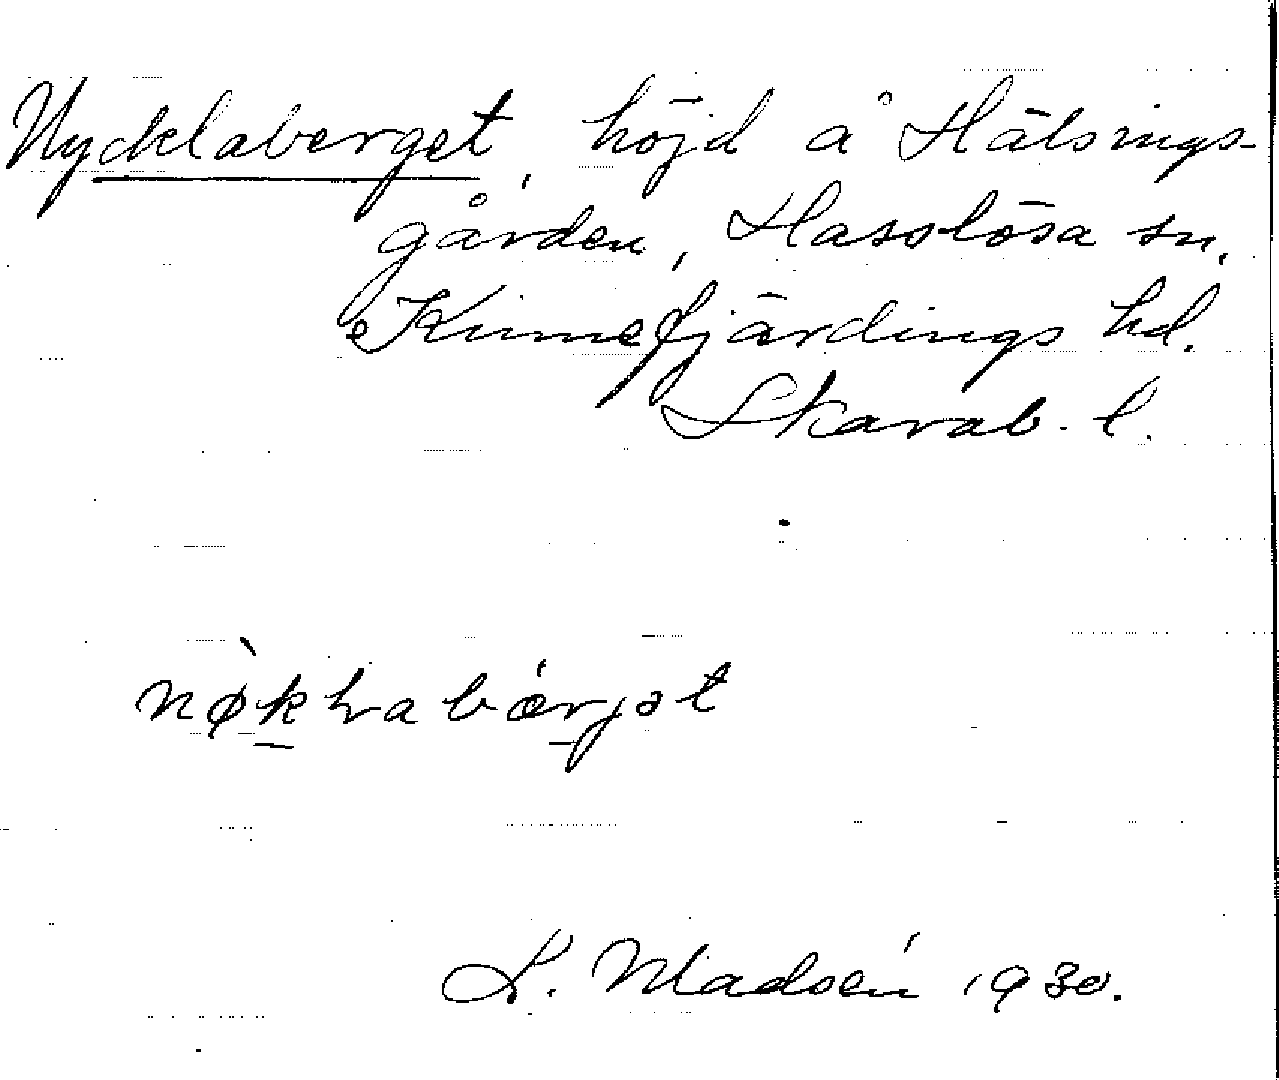 Nycklaberget, höjd å Hälsings-
gården, Hasslösa sn,
Kinnefjärdings hd.
Skarab. l.
nø̀kLabǽrjət
L. Madsén 1930.